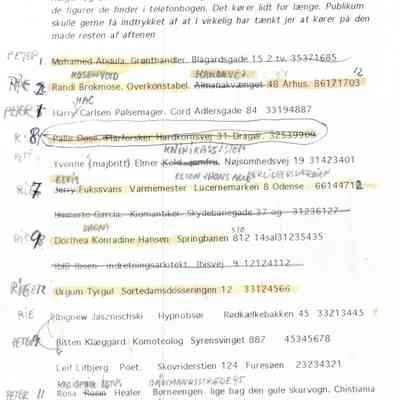 de figurer de finder i telefonbogen. Det kører lidt for længe. Publikum
skulle gerne få indtrykket af at I virkelig har tænkt jer at kører på den
made resten af aftenen
PETER 1 Mohamed Abdula. Grønthandler. Blågårdsgade 15 2.tv. 35371685
ROSENVOLD 12
RIE 2 Randi Brokmose, Overkonstabel. Almanakvænget 48 Århus. 86171703
MAC
PETER Harry Carlsen Pølsemager. Cord Adlersgade 84 33194887
8 Palle Dose. Harforsker Hardkornsvej 31 Dragør. 32539909
Yvonne (majbritt) Elmer Kold jomfru. Nøjsomhedsvej 19 31423401
ELVIS
RIE 7 Jerry Fukssvans Varmemester Lucernemarken 8 Odense 66144712
Humberto Garcia. Kiomantiker Skydebanegade 37 og 31236127
510
RIE 9 Dorthea Konradine Hansen Springbanen 812 14sal31235435
Ibill Ibsen indretningsarkitekt. Ibisvej 9 12124112
RIE 12 Urgum Tyrgul Sortedamsdosseringen 12 33124566
RIE Zbignew Jasznischski Hypnotisør Rødkælkebakken 45 33213445
PETER Bitten Klæggard Komoteolog Syrensvinget 887 45345678
Leif Lifbjerg Poet. Skovriderstien 124 Furesøen 23234321
PETER 11 Rosa Rosin Healer Børneengen. lige bag den gule skurvogn. Chistiania